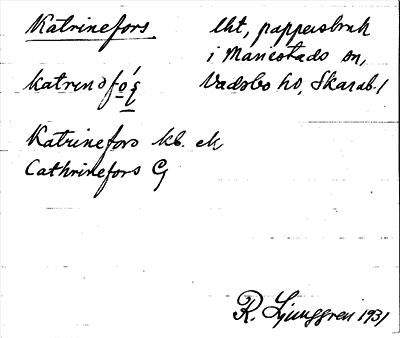 Katrinefors lht, pappersbruk
i Mariestads sn,
katrinəfó̱s̱ Vadsbo hd, Skarab. l
Katrinefors kb. ek
Cathrinefors G
R. Ljunggren 1931